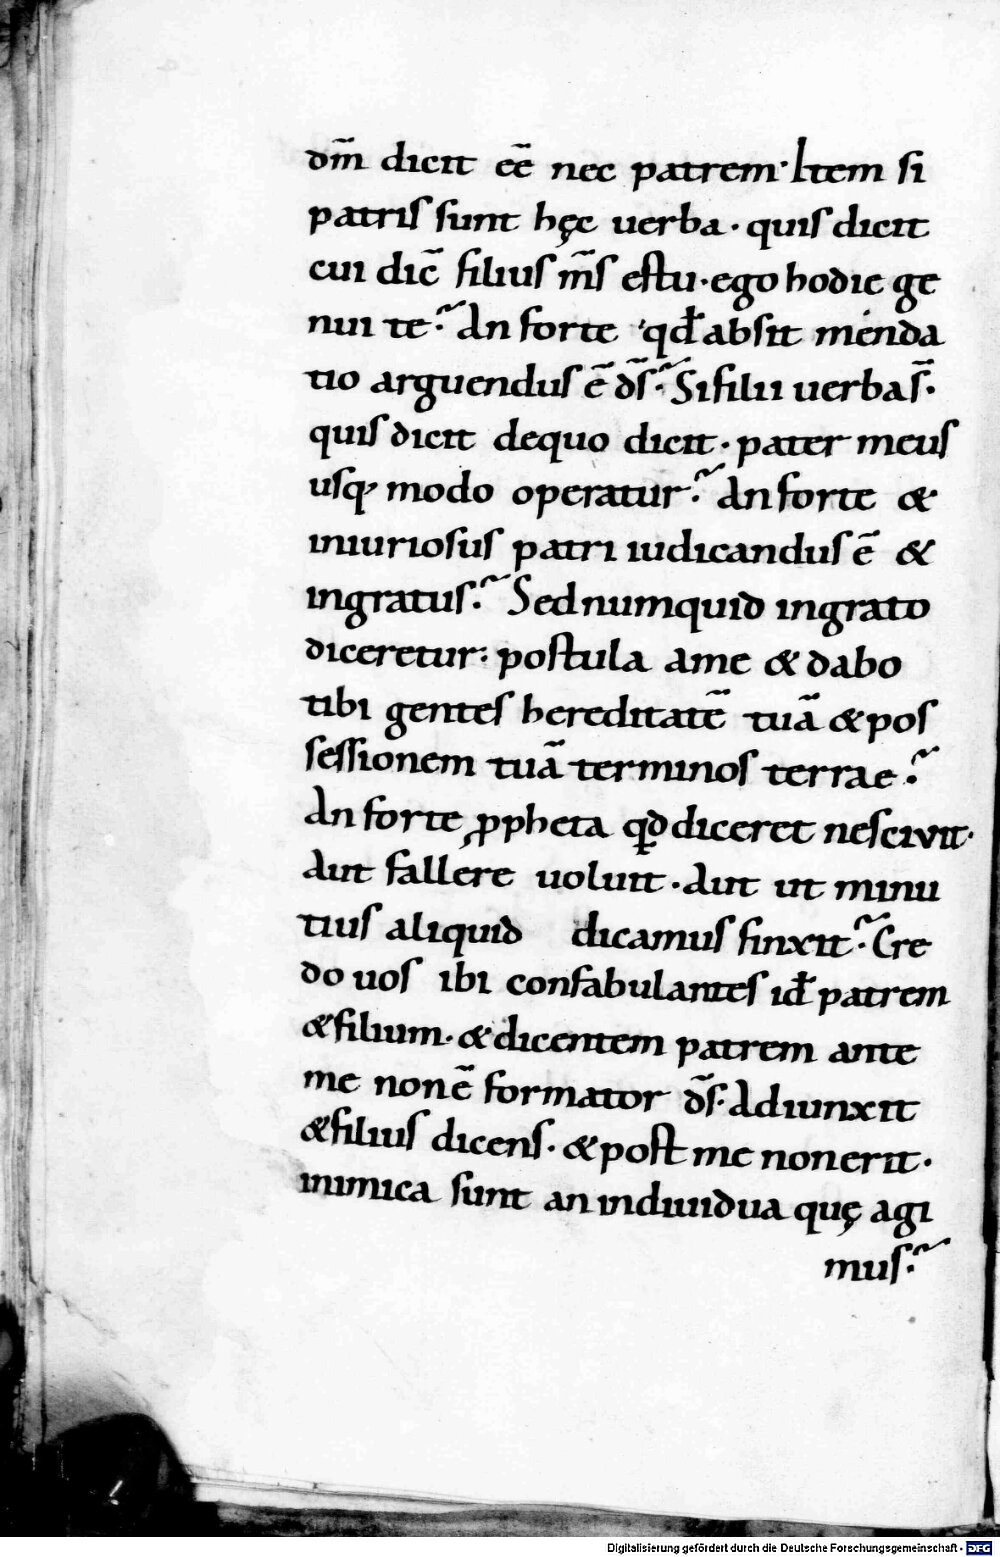 dm̄ dicit eē nec patrem· Item si
patris sunt hęc uerba· quis dicit
cui dic̄ filius m̄s estu· ego hodie ge
nui te? An forte qđ absit menda
tio arguendus ē d̄s? Si filii uerba s̄·
quis dicit dequo dicit· pater meus
usq· modo operatur? An forte &
iniuriosus patri iudicandus ē &
ingratus? Sed numquid ingrato
diceretur: postula ame & dabo
tibi gentes hereditatē tuā & pos
sessionem tuā terminos terrae?
An forte ꝓpheta qđ diceret nesciuit·
aut fallere uoluit· aut ut minu
tius aliquid dicamus finxit? Cre
do uos ibi confabulantes iđ patrem
& filium· & dicentem patrem ante
me non ē formator d̄s· Adiunxit
& filius dicens· & post me non erit·
inimica sunt an indiuidua quę agi
mus?
Digitalisierung gefördert durch die Deutsche Forschungsgemeinschaft - DFG